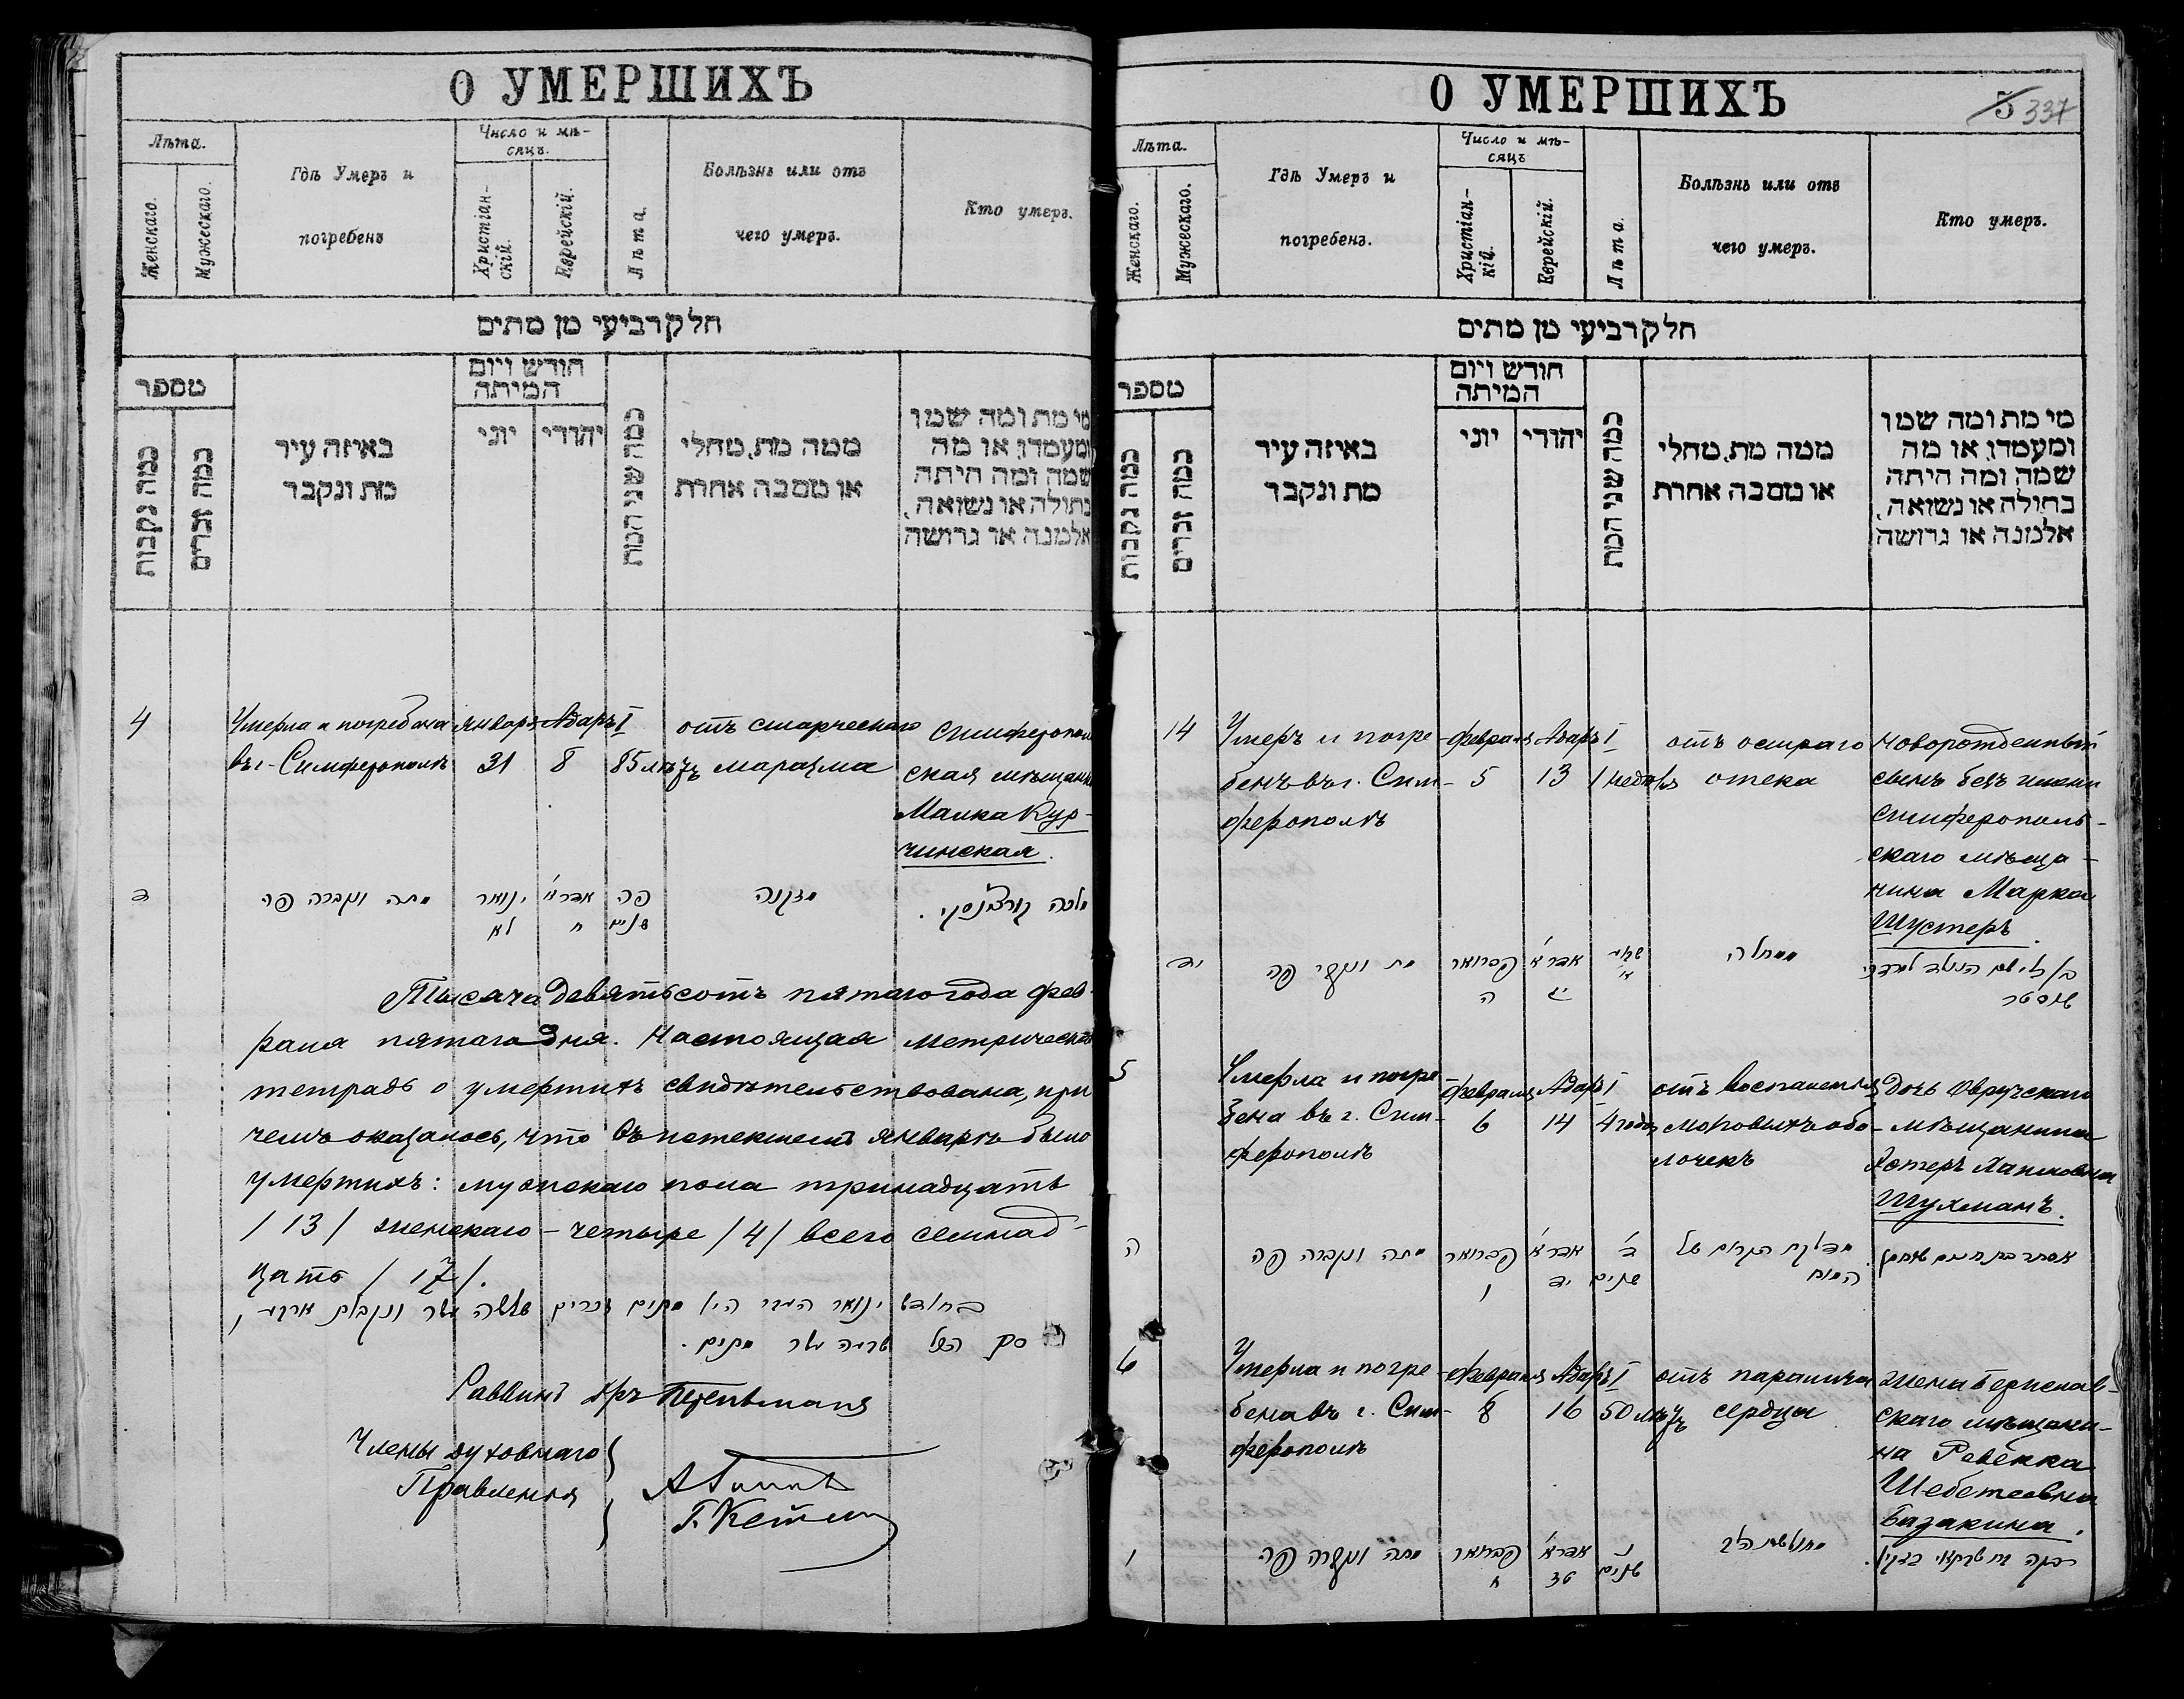 О УМЕРШИХЪ
Лѣта.
Женскаго.
Мужескаго.
Гдѣ Умеръ и
погребенъ
Число и мѣ-
сяцъ.
Христіан-
скій.
Еврейскій.
Лѣта.
Болѣзнь или отъ
чего умеръ.
Кто умеръ.
חלק רביעי מן מתים
מספר
כמה נקבות
כמה זכרים
באיזה עיר
מת ונקבר
חודש ויום
המיתה
יוני
יהודי
כמה שני המת
ממה מת, מחלי
או מסבה אחרת
מי מת ומה שמו
ומעמדו, או מה
שמה ומה היתה
בתולה או נשואה,
אלמנה או גרושה
4
Умерла и погребена
въ г. Симферополѣ
Января
31
Адаръ I
8
85 лѣтъ
отъ старческаго
маразма
Симферополь
ская мѣщанка
Малка Кур-
чинская.
ד
מתה ונקברה פה
ינואר
לא
אדר א׳
ח
פה
שנים
מזקנה
מלכה קורצינסקי.
Тысяча девятьсотъ пятаго года фев-
раля пятаго дня. Настоящая метрическая
тетрадь о умершихъ свидѣтельствована, при
чемъ оказалось, что въ истекшемъ январѣ было
умершихъ: мужскаго пола тринадцать
/13/ женскаго - четыре /4/ всего семнад-
цать /17/.
בחודש ינואר העבר היו מתים זכרים שלשה עשר ונקבות ארבע,
סך הכל שבעה עשר מתים.
Раввинъ Д-ръ
Члены духовнаго
Правленія
О УМЕРШИХЪ
5 337
Лѣта.
Женскаго.
Мужескаго.
Гдѣ Умеръ и
погребенъ.
Число и мѣ-
сяцъ
Христіан-
кій.
Еврейскій.
Лѣта.
Болѣзнь или отъ
чего умеръ.
Кто умеръ.
חלק רביעי מן מתים
מספר
כמה נקבות
כמה זכרים
באיזה עיר
מת ונקבר
חודש ויום
המיתה
יוני
יהודי
כמה שני המת
ממה מת, מחלי
או מסבה אחרת
מי מת ומה שמו
ומעמדו, או מה
שמה ומה היתה
בתולה או נשואה,
אלמנה או גרושה
14
Умеръ и погре-
бенъ въ г. Сим-
ферополѣ
Февраля
5
Адаръ I
13
1 недѣля
отъ остраго
отека
новорожденный
сынъ безъ имени
Симферополь-
скаго мѣща-
нина Марка
Шустеръ.
יד
מת ונקבר פה
פברואר
ה
אדר א׳
יג
ממחלה
שוסטר
5
Умерла и погре
бена въ г. Сим-
ферополѣ
Февраля
6
Адаръ I
14
4 года
отъ воспаленія
мозговыхъ обо-
лочекъ
Дочь Овручскаго
мѣщанина
Эстеръ Хаимовна
Шухманъ.
ה
מתה ונקברה פה
פברואר
ו
אדר א׳
יד
ד׳
שנים
מדלקת הקרום של
המוח
אסתר בת חיים שוחמן
6
Умерла и погре-
бена въ г. Сим-
ферополѣ
Февраля
8
Адаръ I
16
50 лѣтъ
отъ паралича
сердца
жена Берислав-
скаго мѣщани-
на Ревекка
Шебетеевна
Базакина.
ו
מתה ונקברה פה
פברואר
ח
אדר א׳
טז
נ
שנים
מחולשת הלב